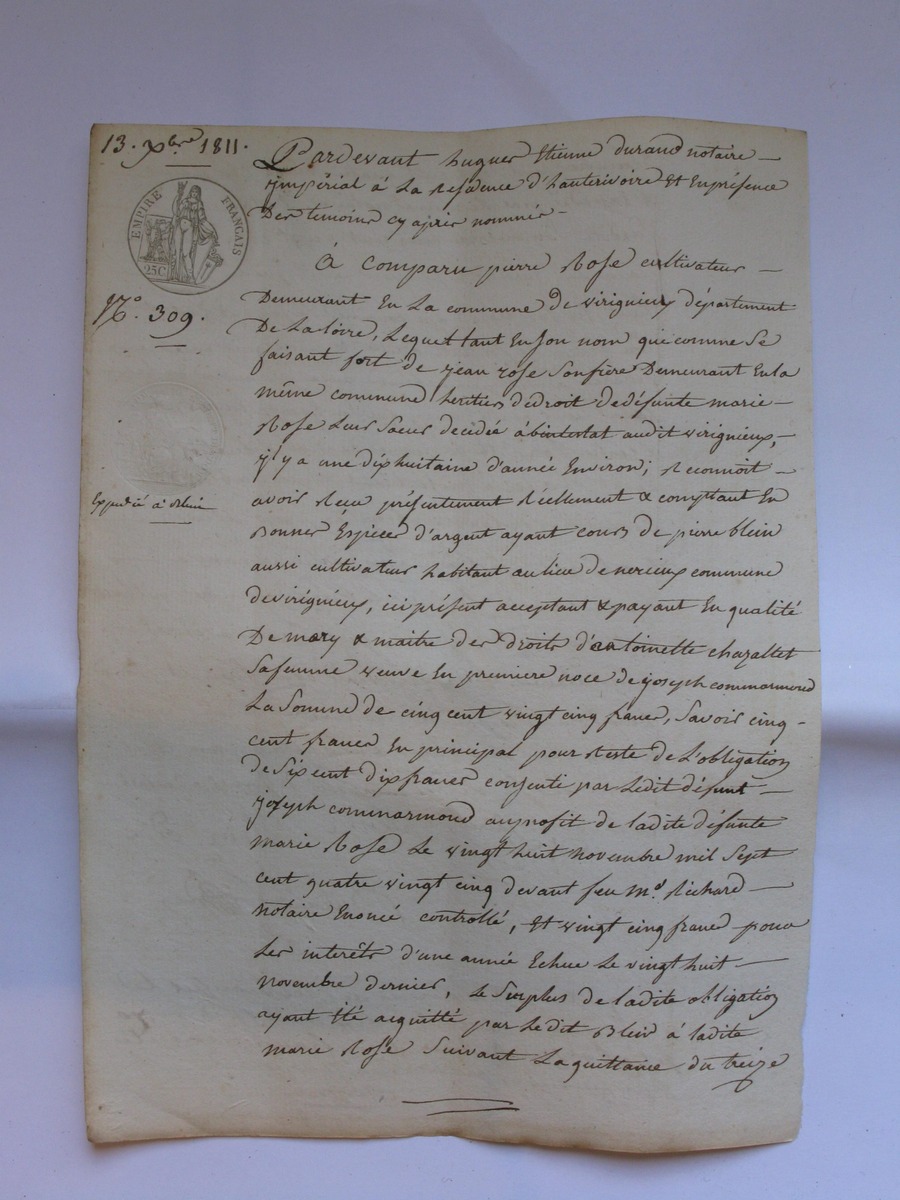 13. Xbre 1811.
EMPIRE FRANÇAIS
25C
N.° 309.
Expédié à
Pardevant hugues Etienne durand notaire
ymperial à La Residence d'hauterivoire Et En présence
Des temoins cy après nommés
A comparu pierre Rose cultivateur
Demeurant En La commune de virignieux département
De La loire, Lequel tant En Son nom que comme Se
faisant fort de jean rose Son frère Demeurant En la
même commune heritiers de droit de défunte marie
Rose Leur Soeur décédée abintestat audit virignieux,
jl y a une dixhuitaine d'année Environ; Reconnoit
avoir Reçu présentement Réellement & comptant En
Bonnes Espèces d'argent ayant cours de pierre blein
aussi cultivateur habitant au lieu de nerieux commune
de virignieux, ici présent acceptant & payant En qualité
De mary & maitre des droits d'antoinette chazallet
Sa femme veuve En premiere noce de joseph commarmond
La Somme de cinq cent vingt cinq francs, Savoir cinq
cent francs En principal pour Reste de L'obligation
de Six cent dix francs consenti par Ledit défunt
joseph commarmond au profit de ladite défunte
marie Rose Le vingt huit novembre mil Sept
cent quatre vingt cinq devant feu M.e Richard
notaire Enoncé controllé, Et vingt cinq francs pour
Les interêts d'une année Echue Le vingt huit
novembre dernier, Le Surplus de ladite obligation
ayant Eté acquitté par Ledit Blein à ladite
marie Rose Suivant La quittance du treize